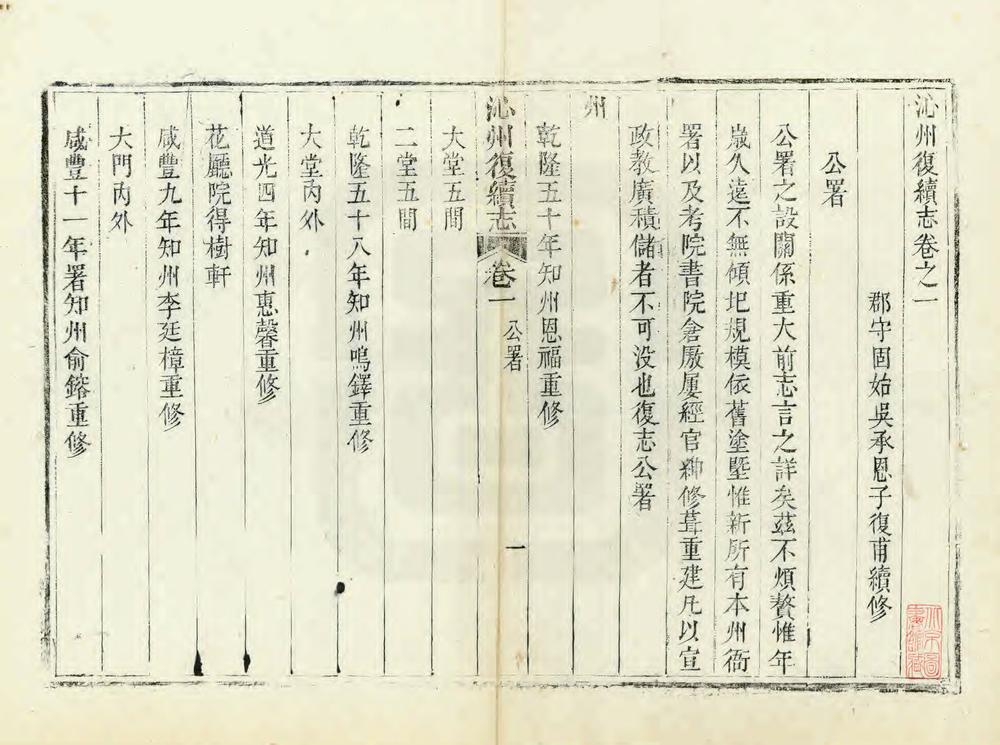 沁州復續志卷之一
郡守固始吳承恩子復甫續修
公署
公署之設關係重大前志言之詳矣茲不煩贅惟年
歲久遠不無傾圮規模依舊塗塈惟新所有本州衙
署以及考院書院倉厫屢經官紳修葺重建凡以宣
政教廣積儲者不可没也復志公署
州
乾隆五十年知州恩福重修
沁州復續志 卷一 公署 一
大堂五間
二堂五間
乾隆五十八年知州鳴鐸重修
大堂內外
道光四年知州惠馨重修
花廳院得樹軒
咸豐九年知州李廷樟重修
大門內外
咸豐十一年署知州俞鎔重修